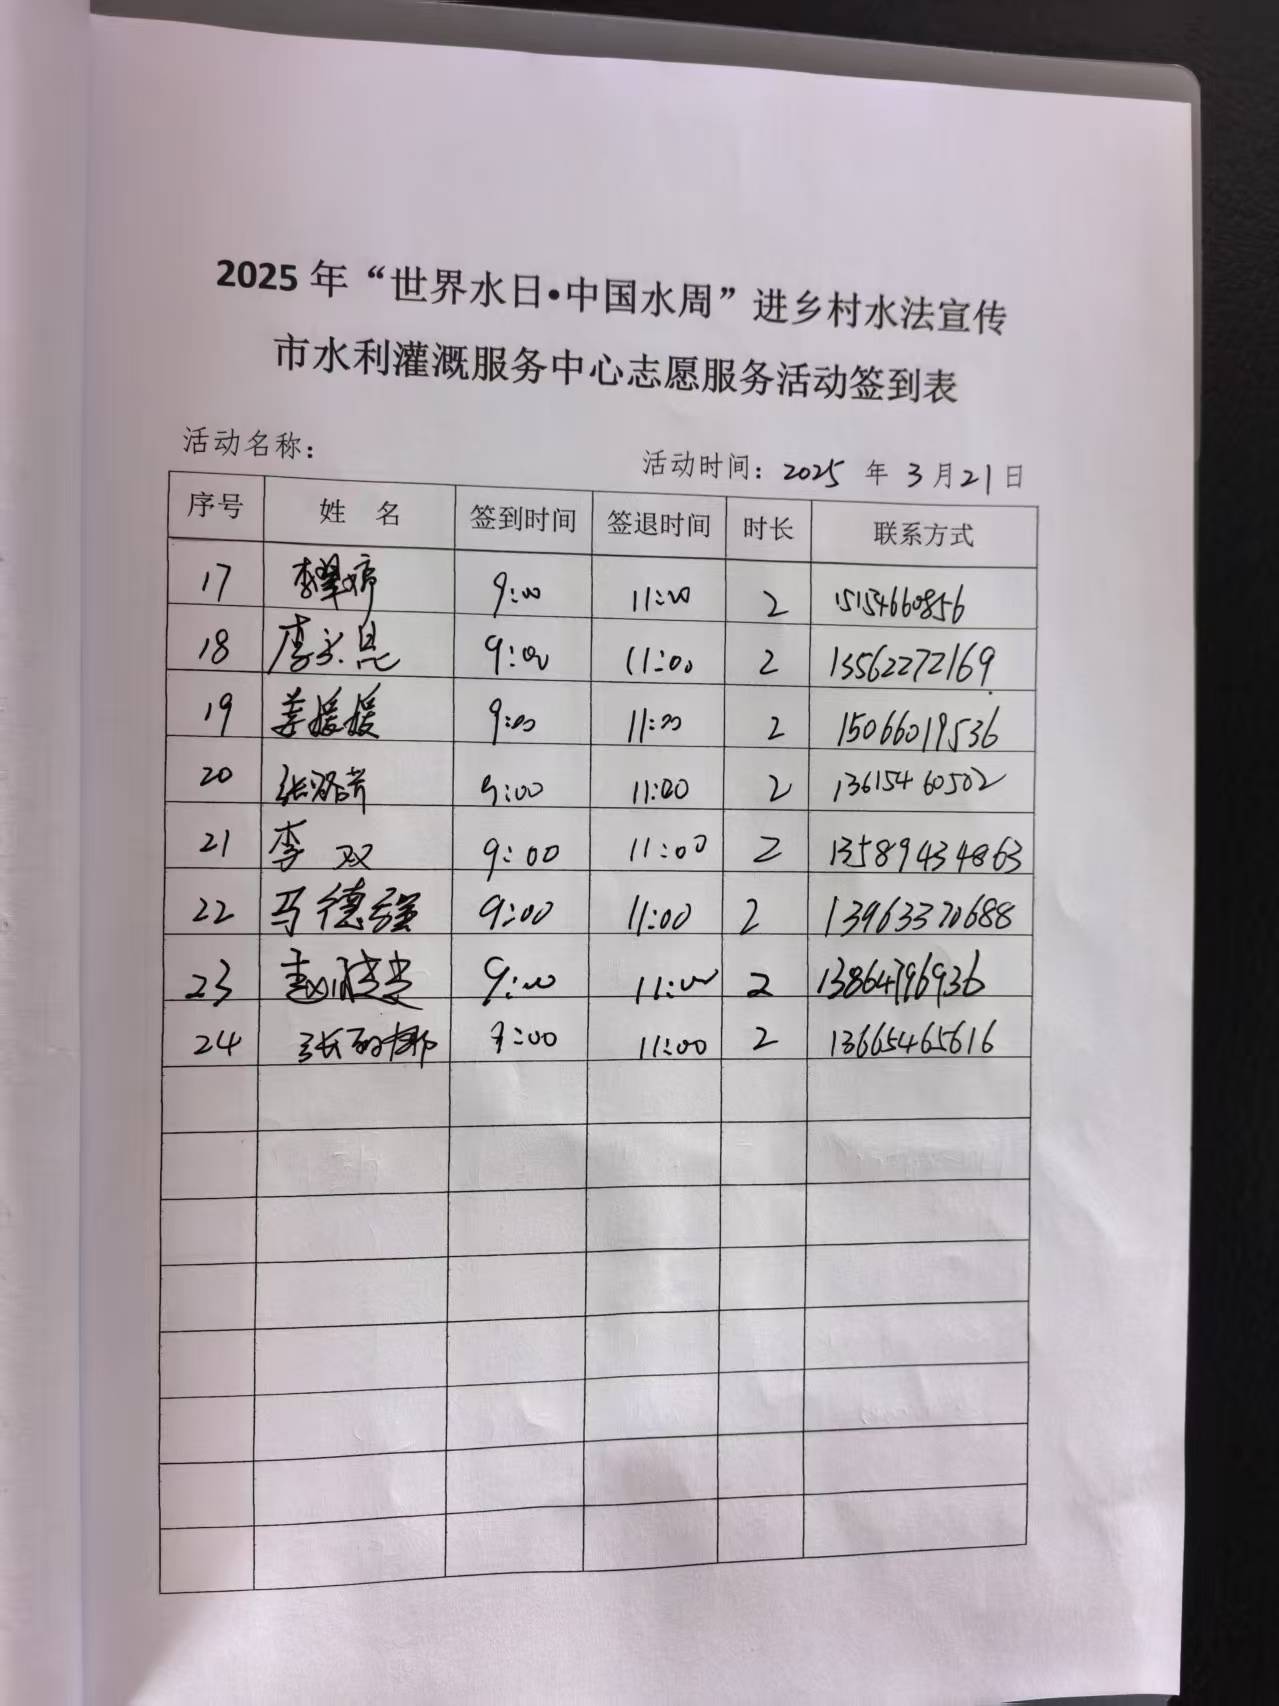 2025年“世界水日•中国水周”进乡村水法宣传
市水利灌溉服务中心志愿服务活动签到表
活动名称：
活动时间：2025 年 3 月 21 日
序号 姓 名 签到时间 签退时间 时长 联系方式
17 李翠婷 9:00 11:00 2 15154660856
18 9:00 11:00 2 13562272169
19 姜媛媛 9:00 11:00 2 15066019536
20 9:00 11:00 2 13615460502
21 李双 9:00 11:00 2 13589434863
22 马德强 9:00 11:00 2 13963370688
23 9:00 11:00 2 13864796936
24 9:00 11:00 2 13665465616